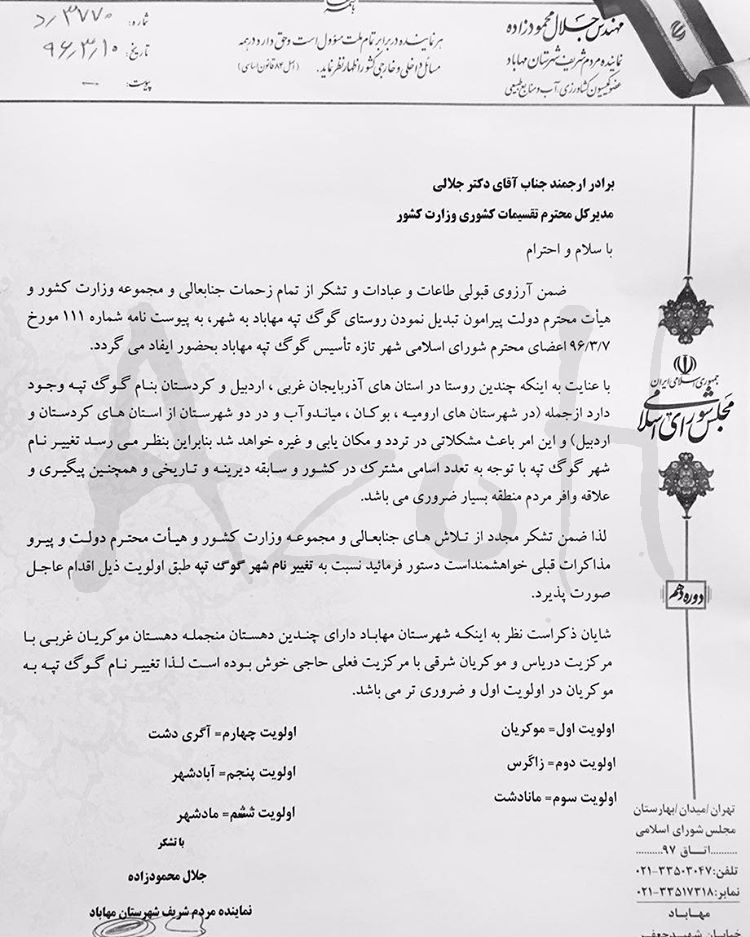 مهندس جلال محمودزاده
نماینده مردم شریف شهرستان مهاباد
عضو کمیسیون کشاورزی، آب و منابع طبیعی
هر نماینده در برابر تمام ملت مسؤول است و حق دارد در همه
مسائل داخلی و خارجی کشور اظهار نظر نماید. (اصل ۸۴ قانون اساسی)
شماره: ۳۷۷۰/د
تاریخ: ۹۶/۳/۱۰
پیوست: —
برادر ارجمند جناب آقای دکتر جلالی
مدیرکل محترم تقسیمات کشوری وزارت کشور
با سلام و احترام
ضمن آرزوی قبولی طاعات و عبادات و تشکر از تمام زحمات جنابعالی و مجموعه وزارت کشور و
هیأت محترم دولت پیرامون تبدیل نمودن روستای گوگ تپه مهاباد به شهر، به پیوست نامه شماره ۱۱۱ مورخ
۹۶/۳/۷ اعضای محترم شورای اسلامی شهر تازه تأسیس گوگ تپه مهاباد بحضور ایفاد می گردد.
با عنایت به اینکه چندین روستا در استان های آذربایجان غربی ، اردبیل و کردستان بنام گوگ تپه وجود
دارد ازجمله (در شهرستان های ارومیه ، بوکان ، میاندوآب و در دو شهرستان از استان های کردستان و
اردبیل) و این امر باعث مشکلاتی در تردد و مکان یابی و غیره خواهد شد بنابراین بنظر می رسد تغییر نام
شهر گوگ تپه با توجه به تعدد اسامی مشترک در کشور و سابقه دیرینه و تاریخی و همچنین پیگیری و
علاقه وافر مردم منطقه بسیار ضروری می باشد.
لذا ضمن تشکر مجدد از تلاش های جنابعالی و مجموعه وزارت کشور و هیأت محترم دولت و پیرو
مذاکرات قبلی خواهشمنداست دستور فرمائید نسبت به تغییر نام شهر گوگ تپه طبق اولویت ذیل اقدام عاجل
صورت پذیرد.
شایان ذکراست نظر به اینکه شهرستان مهاباد دارای چندین دهستان منجمله دهستان موکریان غربی با
مرکزیت دریاس و موکریان شرقی با مرکزیت فعلی حاجی خوش بوده است لذا تغییر نام گوگ تپه به
موکریان در اولویت اول و ضروری تر می باشد.
اولویت اول= موکریان
اولویت دوم= زاگرس
اولویت سوم= ماناد‌شت
اولویت چهارم= آگری دشت
اولویت پنجم= آبادشهر
اولویت ششم= مادشهر
با تشکر
جلال محمودزاده
نماینده مردم شریف شهرستان مهاباد
جمهوری اسلامی ایران
مجلس شورای اسلامی
دوره دهم
تهران/میدان/بهارستان
مجلس شورای اسلامی
..........اتاق ۹۷..........
تلفن:۳۳۵۰۳۰۴۷-۰۲۱
نمابر:۳۳۵۱۷۳۱۸-۰۲۱
مهاباد
خیابان شهیدجعفر
AzoH